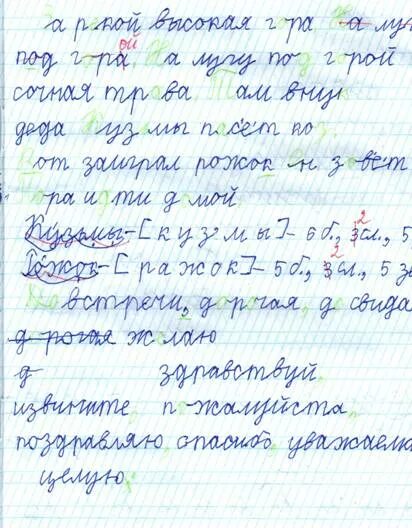 За рекой высокая гора. На лу
под горой. На лугу под горой
сочная трава. Там внук
деда Кузьмы пасёт коз.
Вот заиграл рожок. Он зовёт
Пора идти домой.
Кузьмы-[кузмы]-6б., 2сл., 5
Рожок-[ражок]-5б., 2сл., 5 зв
До встречи, дорогая, до свида
дорогая желаю
д здравствуй,
извините, пожалуйста,
поздравляю, спасибо, уважаем
целую.